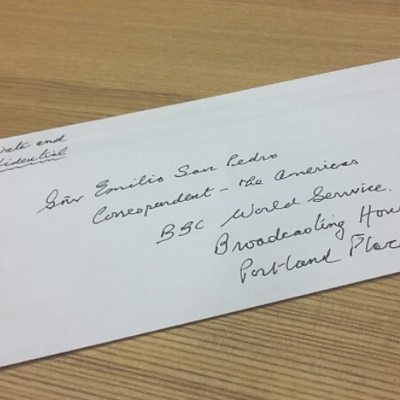 Private and
Confidential
Sñr Emilio San Pedro
Correspondent - The Americas
BBC World Service.
Broadcasting Hou
Portland Plac